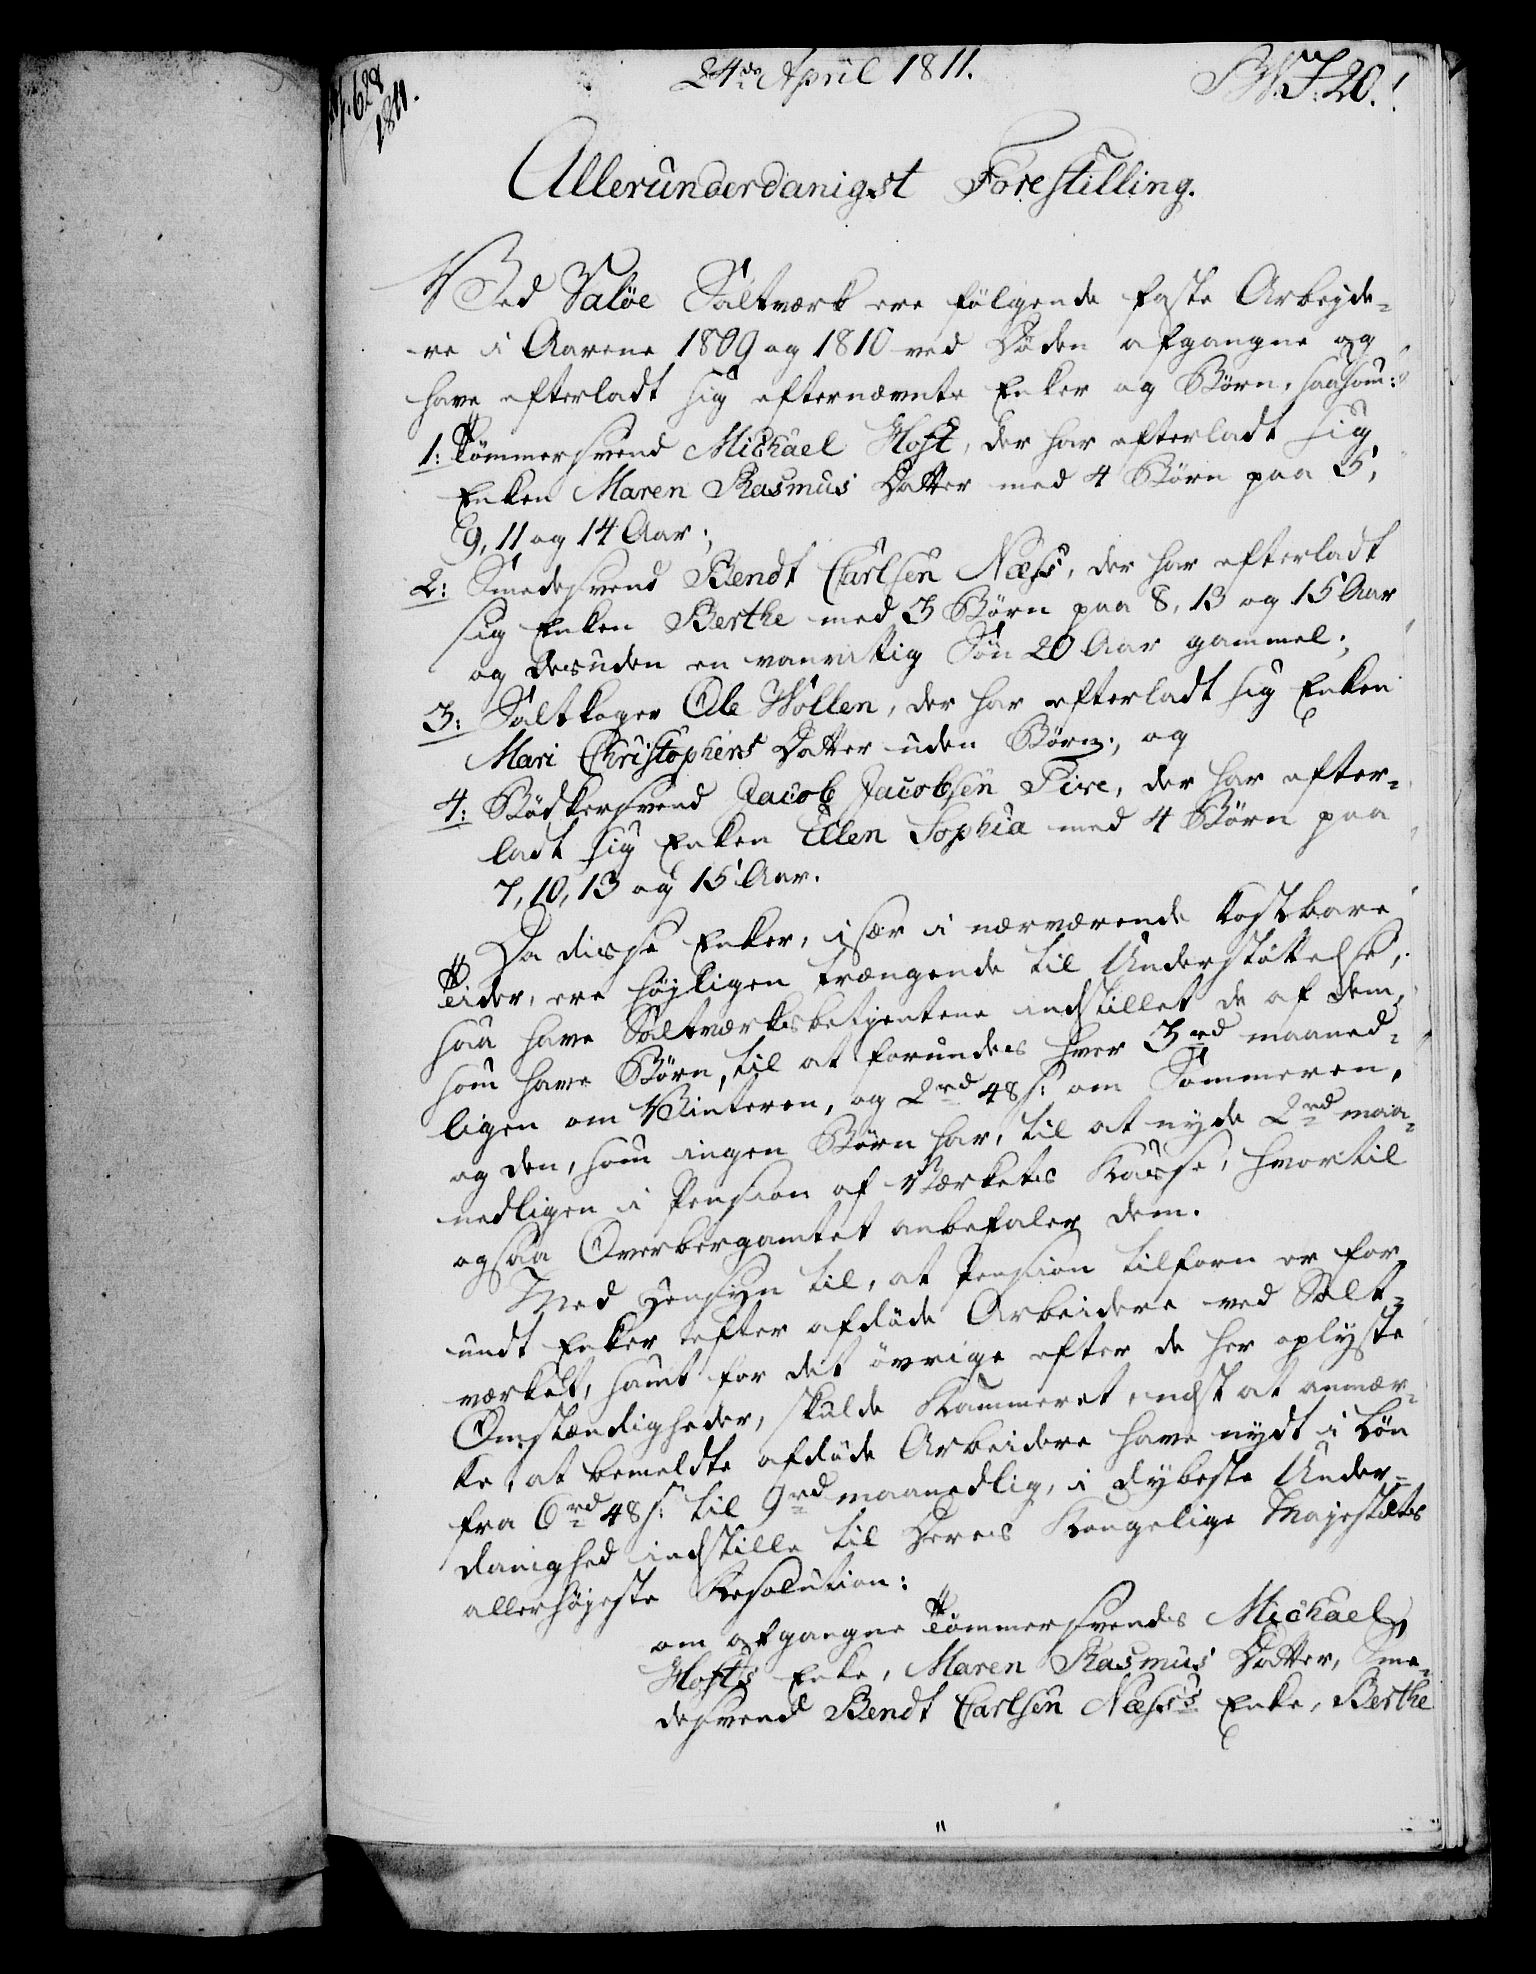 24de April 1811.
No 20.
628
1811.
Allerunderdanigst Forestilling.
Ved Valøe Saltværk ere følgende faste Arbejde-
re i Aarene 1809 og 1810 ved Døden afgangne og
have efterladt sig efternævnte Enker og Børn, saasom:
1: Tømmersvend Michael Hoft, der har efterladt sig
Enken Maren Rasmus Datter med 4 Børn paa 5,
9, 11 og 14 Aar;
2: Smedesvend Bendt Carlsen Næss, der har efterladt
sig Enken Berthe med 3 Børn paa 8, 13 og 15 Aar
og desuden en vanvittig Søn 20 Aar gammel;
3: Saltkoger Ole Wollen, der har efterladt sig Enken
Mari Christophers Datter uden Børn; og
4: Bødkersvend Jacob Jacobsen Fire, der har efter-
ladt sig Enken Ellen Sophia med 4 Børn paa
7, 10, 13 og 15 Aar.
Da disse Enker, især i nærværende kostbare
Tider, ere højligen trængende til Understøttelse,
saa have Saltværksbetjentene indstillet de af dem,
som have Børn, til at forundes hver 3 rd maaned-
ligen om Vinteren, og 2 rd 48 s: om Sommeren,
og den, som ingen Børn har, til at nyde 2 rd maa-
nedligen i Pension af Værkets Kasse, hvortil
ogsaa Overbergamtet anbefaler dem.
Med Hensyn til, at Pension tilforn er for-
undt Enker efter afdøde Arbeidere ved Salt-
værket, samt for det øvrige efter de her oplyste
Omstændigheder, skulde Kammeret, næst at anmær-
ke, at bemeldte afdøde Arbeidere have nydt i Løn
fra 6 rd 48 s: til 9 rd maanedlig, i dybeste Under-
danighed indstille til Deres Kongelige Majestæts
allerhøjeste Resolution:
om afgangne Tømmersvends Michael
Hofts Enke, Maren Rasmus Datter, Sme-
desvend Bendt Carlsen Næss's Enke, Berthe